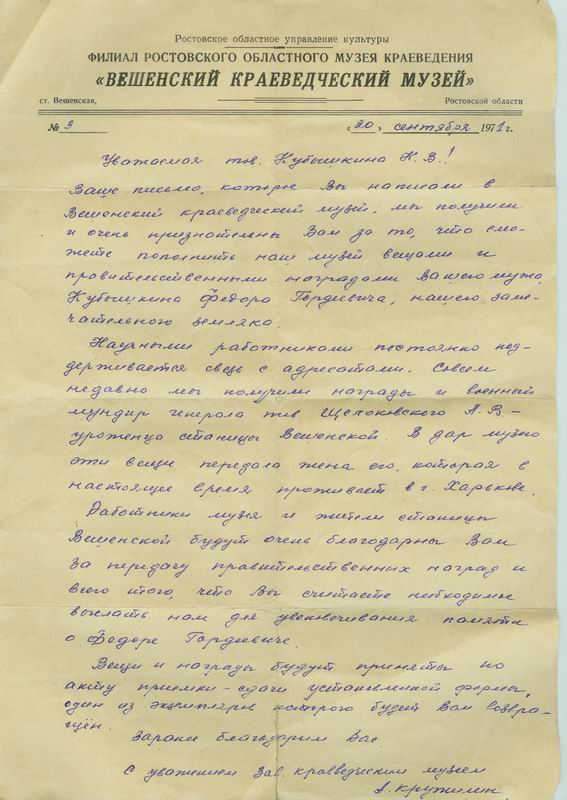 Ростовское областное управление культуры
ФИЛИАЛ РОСТОВСКОГО ОБЛАСТНОГО МУЗЕЯ КРАЕВЕДЕНИЯ
«ВЕШЕНСКИЙ КРАЕВЕДЧЕСКИЙ МУЗЕЙ»
ст. Вешенская, Ростовской области
№ 3 «20» сентября 1971 г.
Уважаемая тов. Кубышкина К. В.!
Ваше письмо, которые Вы написали в
Вешенский краеведческий музей, мы получили
и очень признательны Вам за то, что смо-
жете пополнить наш музей вещами и
правительственными наградами Вашего мужа,
Кубышкина Федора Гордиевича, нашего заме-
чательного земляка.
Научными работниками постоянно под-
держивается связь с адресатами. Совсем
недавно мы получили награды и военный
мундир генерала тов. Щелоковского А. В. -
уроженца станицы Вешенской. В дар музею
эти вещи передала жена его, которая в
настоящие время проживает в г. Харькове.
Работники музея и жители станицы
Вешенской будут очень благодарны Вам
за передачу правительственных наград и
всего того, что Вы считаете необходимы
выслать нам для увековечивания памяти
о Федоре Гордиевиче.
Вещи и награды будут приняты по
акту приемки-сдачи установленной формы,
один из экземпляров которого будет Вам возвра-
щён.
Заранее благодарим Вас
С уважением Зав. краеведческим музеем
А. Кружилин.